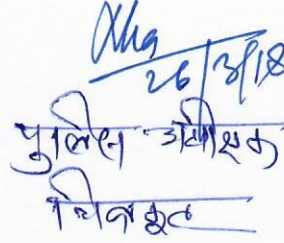 26/3/18
पुलिस अधीक्षक
चित्रकूट